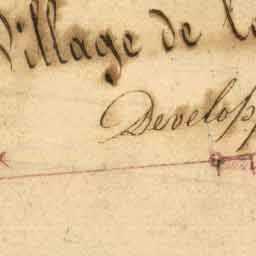 Village de
Develop